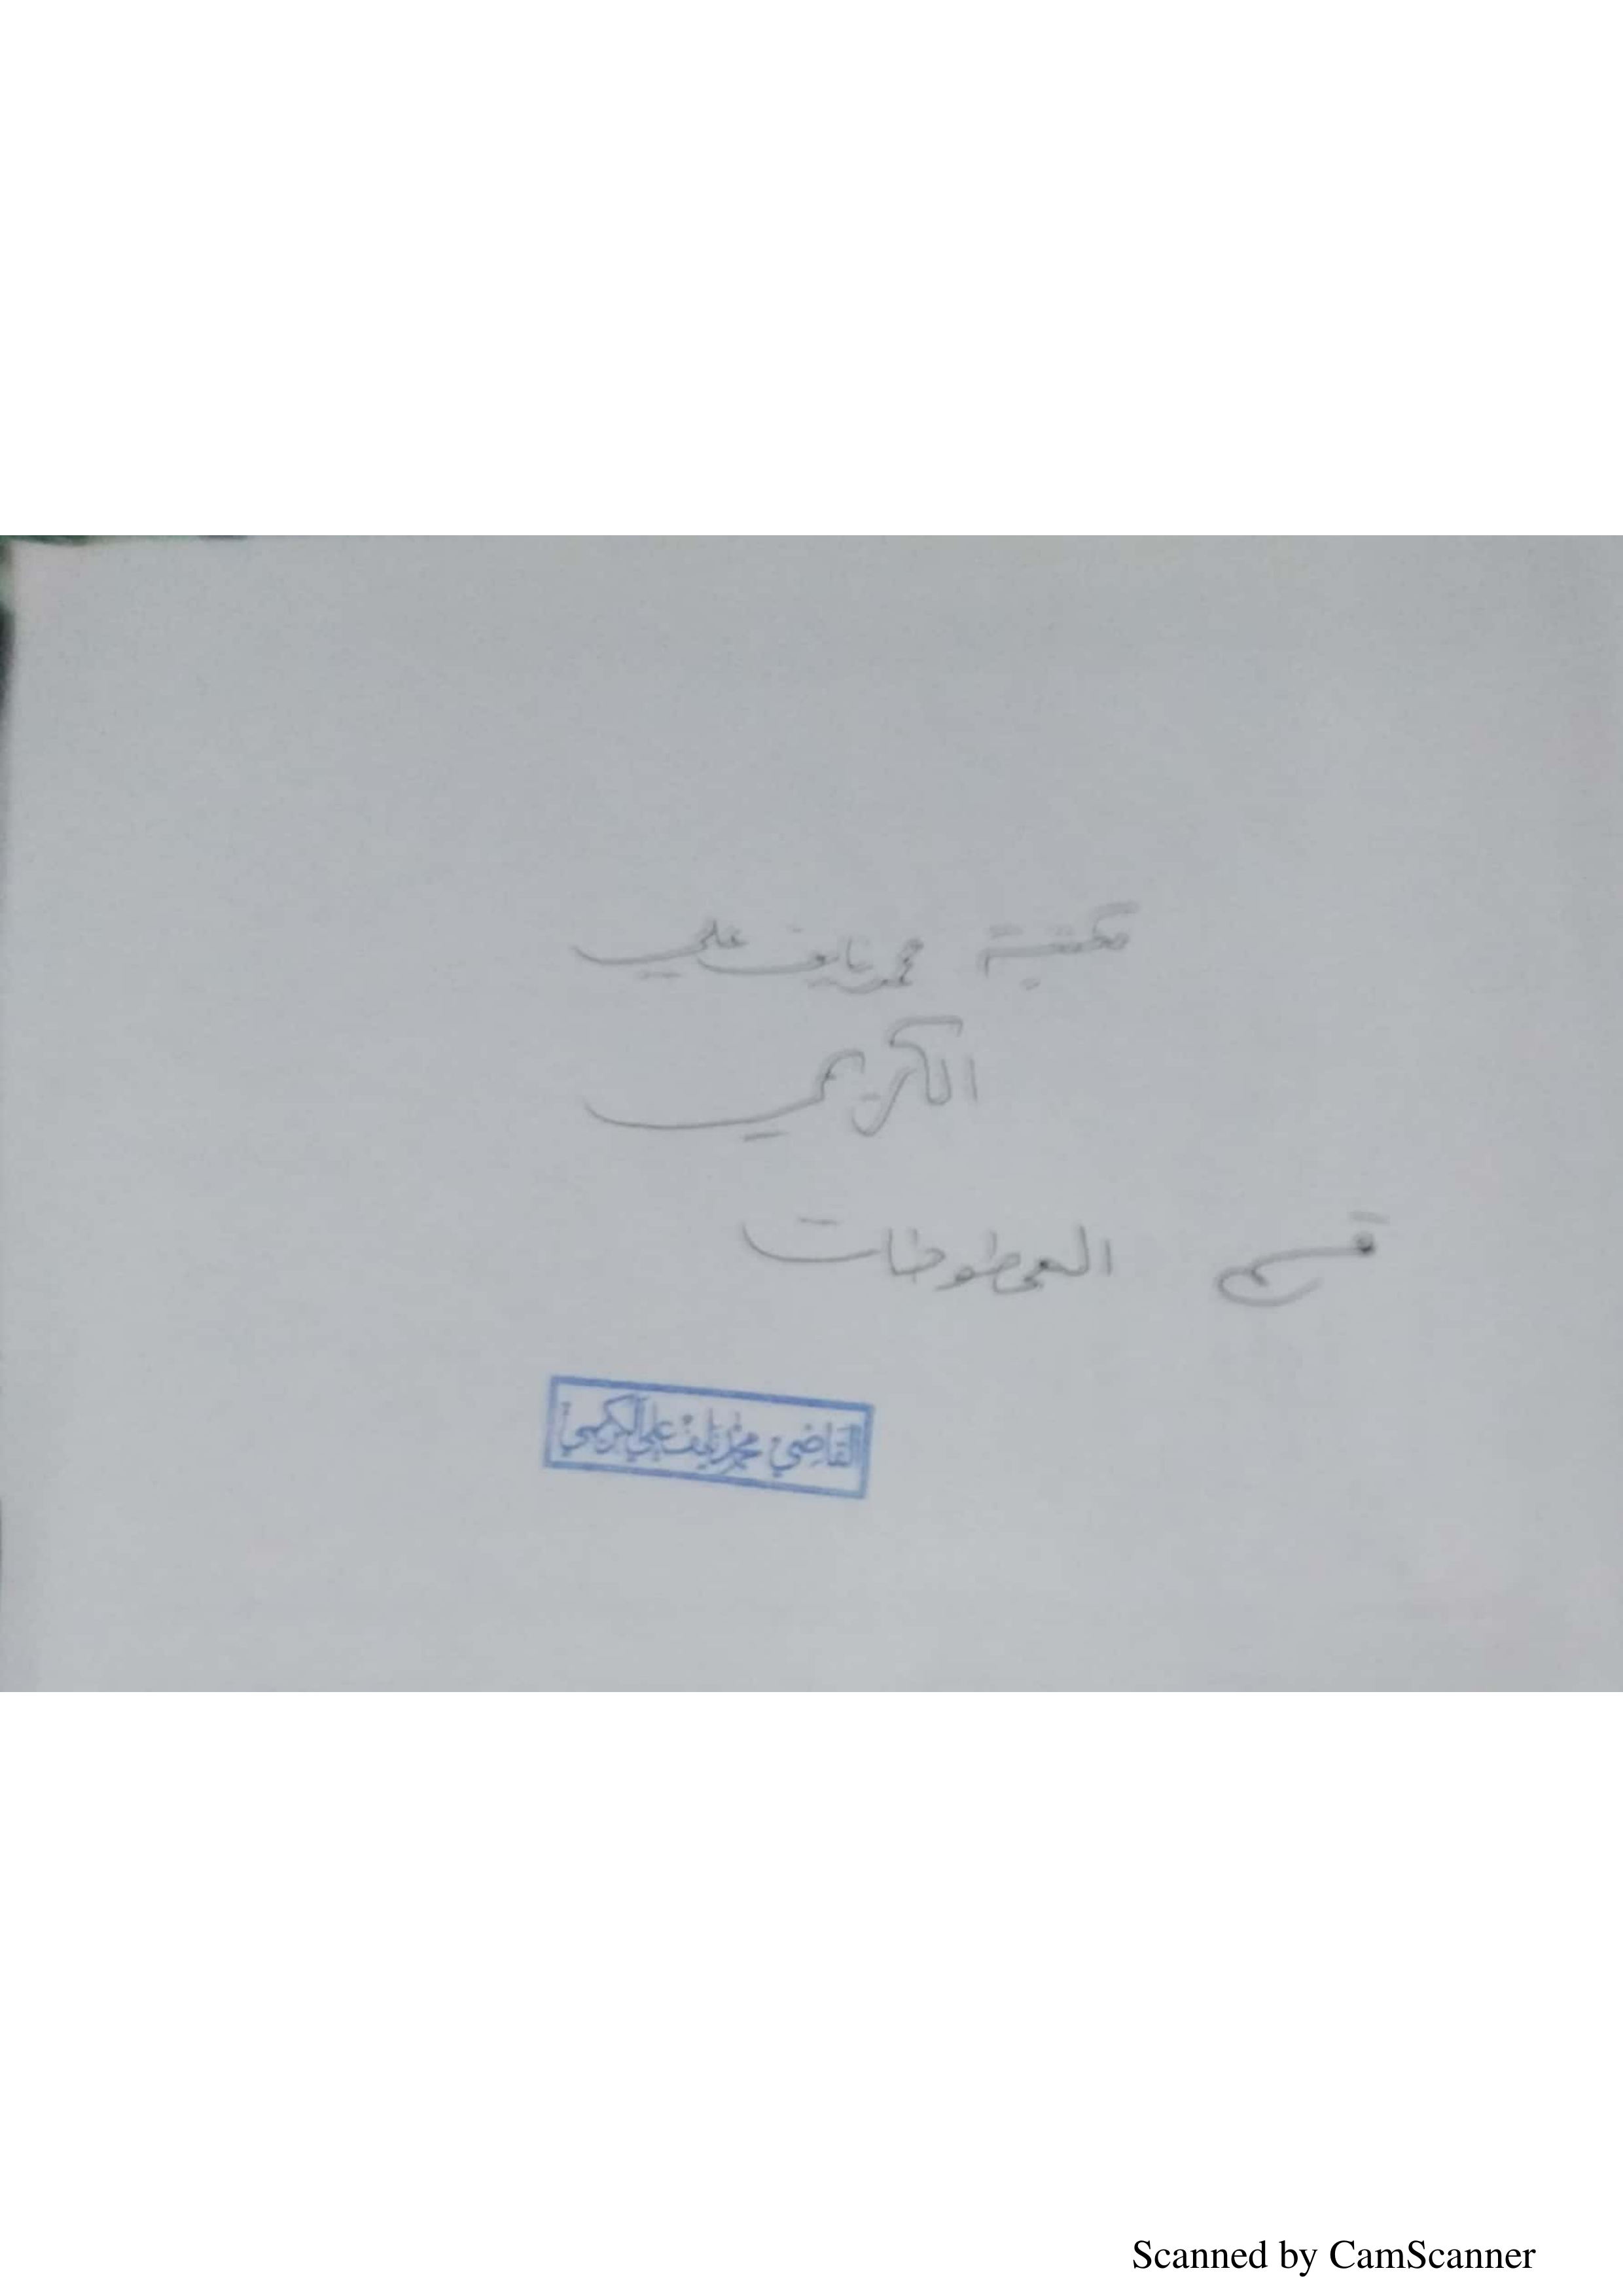 مكتبة محمد نايف علي
الكريمي
قسم المخطوطات
القاضي محمد نايف علي الكريمي
Scanned by CamScanner